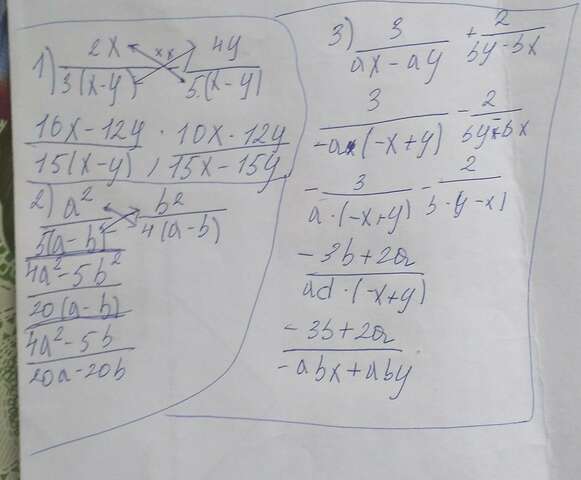 1) 2x/3(x-y) xx 4y/5(x-y)
10x-12y/15(x-y) ; 10x-12y/15x-15y
2) a²/5(a-b) b²/4(a-b)
4a²-5b²/20(a-b)
4a²-5b/20a-20b
3) 3/ax-ay + 2/by-bx
3/-a·(-x+y) - 2/by-bx
-3/a·(-x+y) - 2/b·(y-x)
-3b+2a/ad·(-x+y)
-3b+2a/-abx+aby